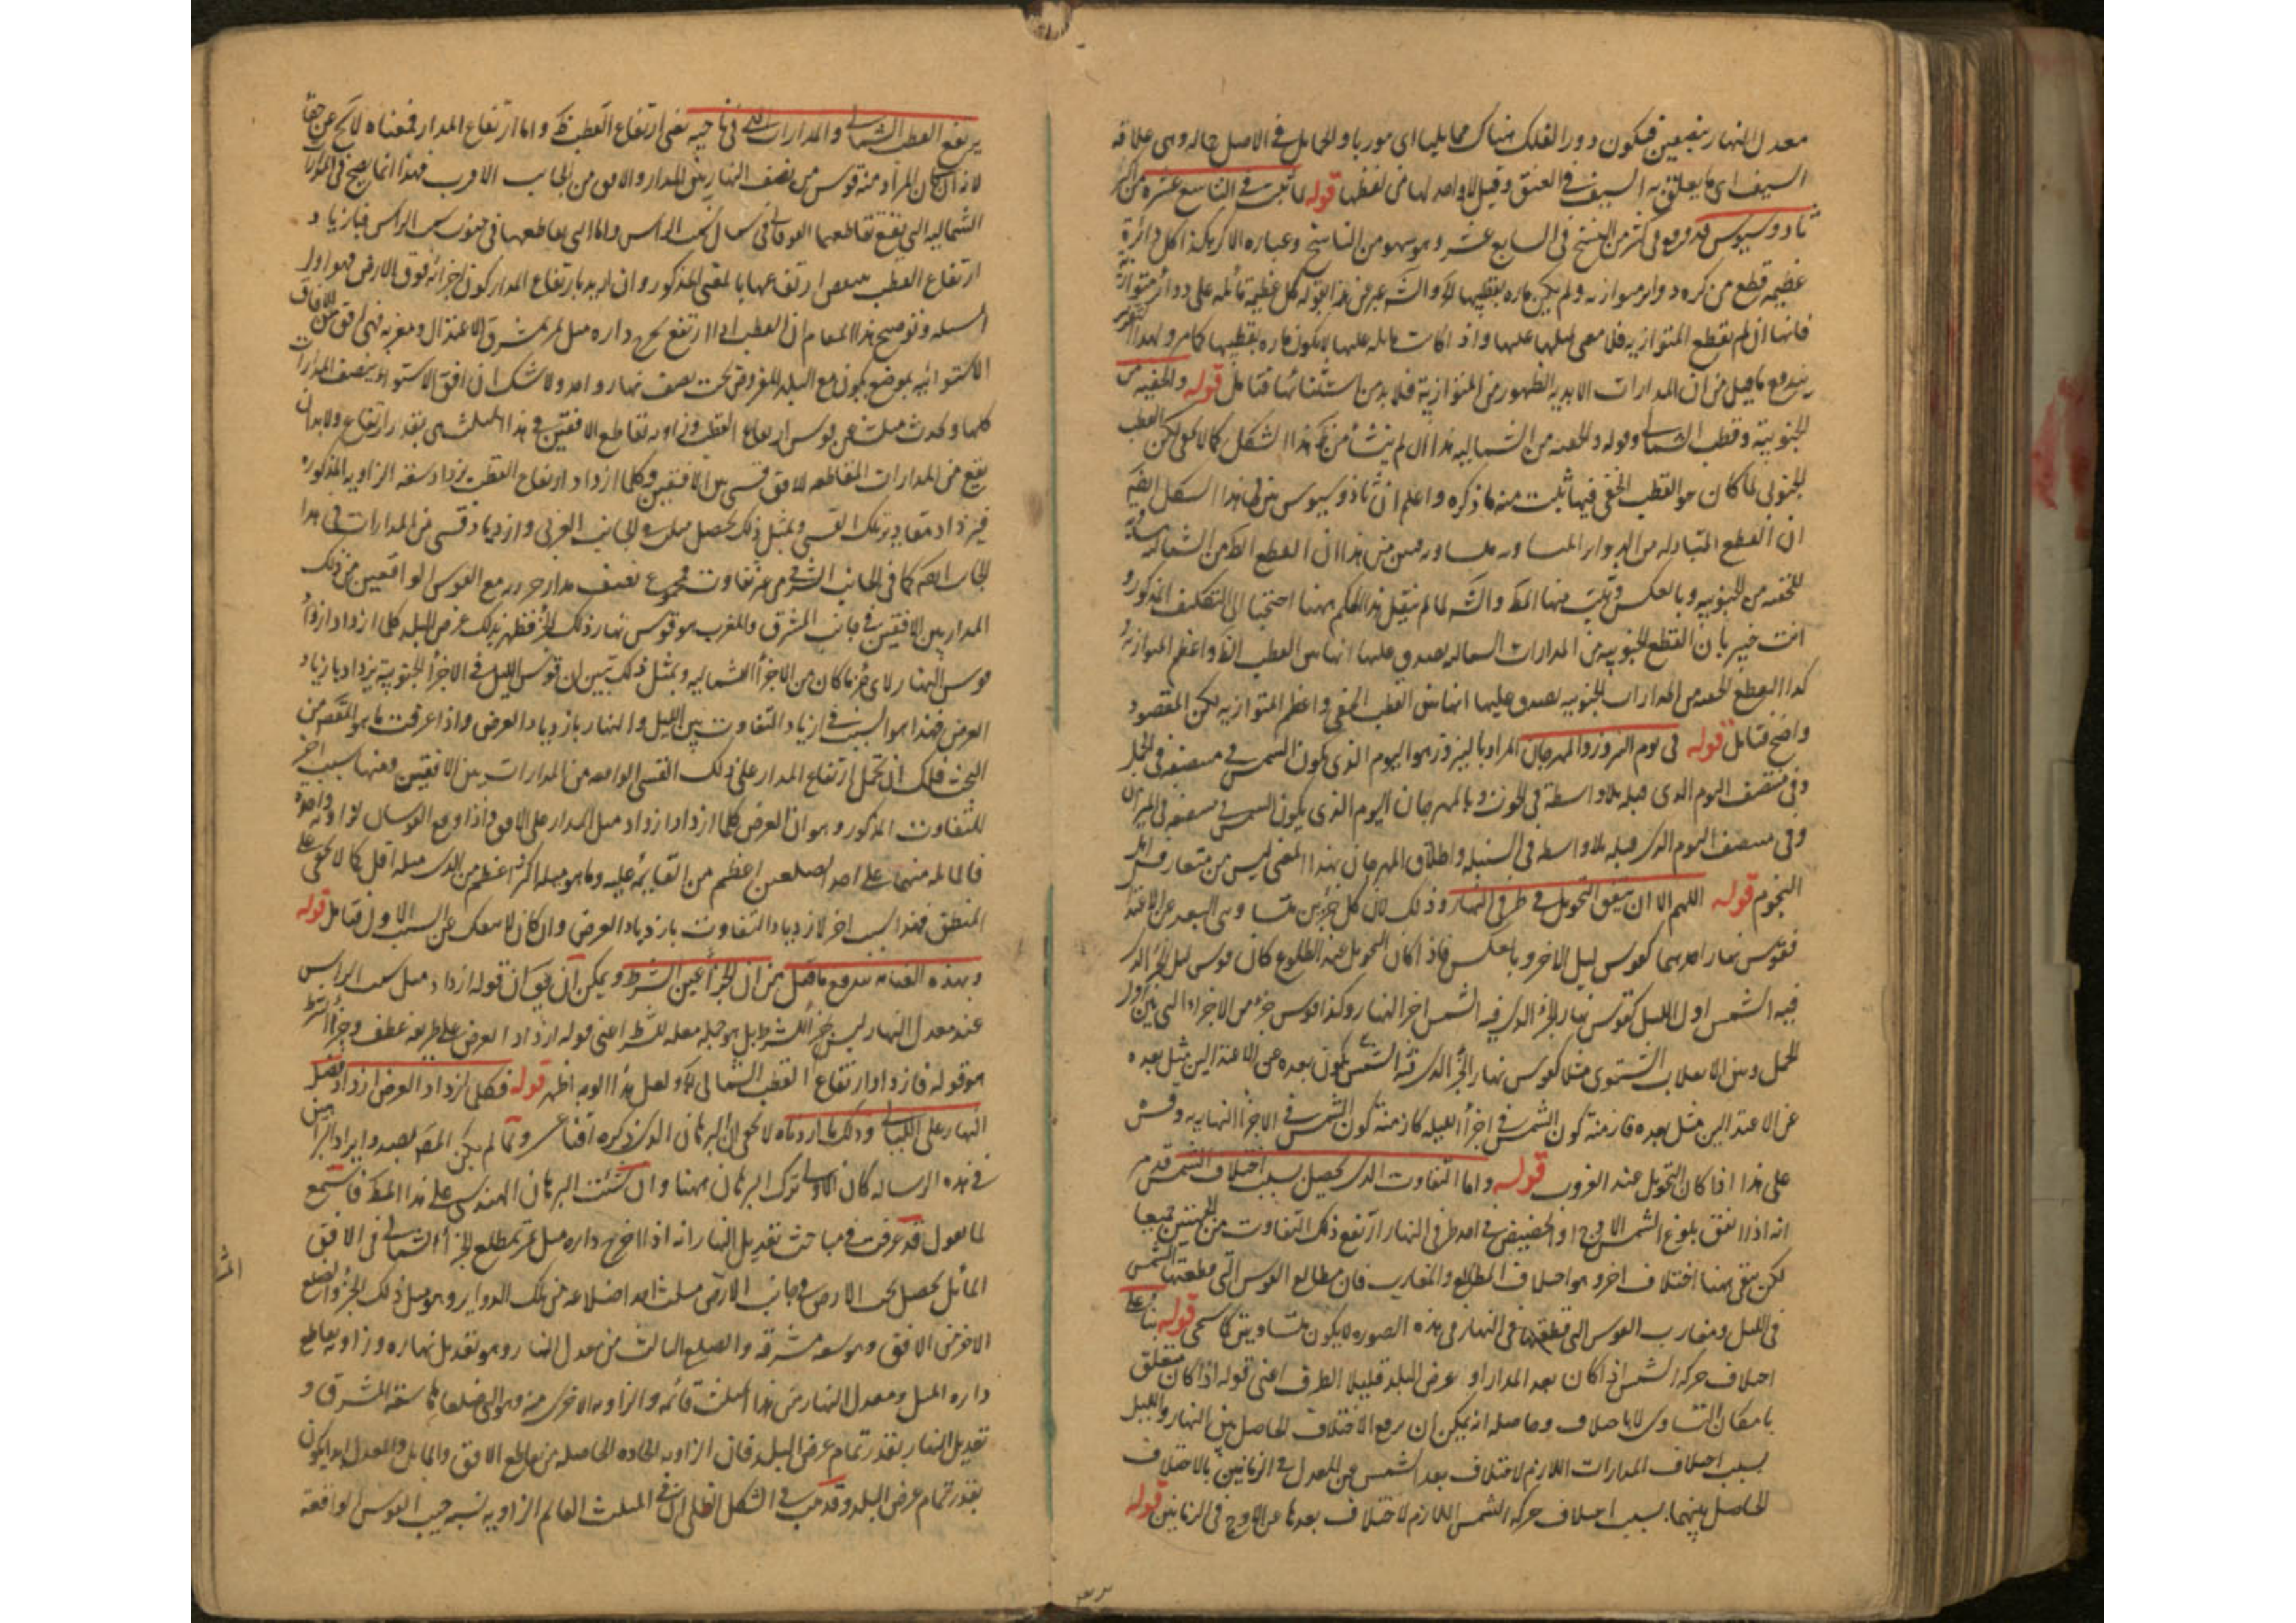 معدل النهار بنصفين فيكون دور الفلك هناك حمايليا اى موربا والحمايل فى الاصل حاله وهى علاقة
السيف اى ما يعلق به السيف فى العنق وقيل لا واحد لها من لفظها قوله لما تبين فى التاسع عشر من اكر
ثاودوسيوس قد وقع فى كثير من النسخ فى السابع عشر وهو سهو من الناسخ وعبارة الاكر هكذا كل دائرة
عظيمة قطع من كرة دواير متوازية ولم يكن مارة بقطبيها والشه عبر عن هذا بقوله كل عظيمة مائلة على دوائر متوازية
فانها ان لم يقطع المتوازية فلا معنى لميلها عليها واذا كانت مايلة عليها لا يكون مارة بقطبيها كما مر ولهذا
يندفع ما قيل من ان المدارات الابدية الظهور من المتوازية فلا بد من استثنائها فتامل قوله والخفية من
الجنوبية وقطب الشمالى وقوله والخفية من الشمالية هذا ان لم ينشأ من هذا الشكل كما لا يخفى لكن القطب
الجنوبى لما كان هو القطب الخفى فيها ثبت منه ما ذكره واعلم ان ثاذوسيوس بين فى هذا الشكل ايضا
ان القطع المتبادلة من الدواير المتساوية متساوية فمن هذا ان القطع الظ من الشمالية مساوية
للخفية من الجنوبية وبالعكس المط والشه لما لم ينقل هذا الحكم ههنا احتجنا الى التكليف المذكور و
انت خبير بان القطع الجنوبية من المدارات الشمالية يصدق عليها انها بين القطب الظ واعظم المتوازية و
كذا القطع الخفية من المدارات الجنوبية يصدق عليها انها بين القطب الخفى واعظم المتوازية لكن المقصود
واضح فتامل قوله فى يوم النيروز والمهرجان المراد بالنيروز هو اليوم الذى يكون الشمس فى منتصفه فى الحمل
وفى منتصف اليوم الذى قبله بلا واسطة فى الحوت وبالمهرجان اليوم الذى يكون الشمس فى منتصفه فى الميزان
وفى منتصف اليوم الذى قبله بلا واسطة فى السنبلة واطلاق المهرجان بهذا المعنى ليس من متعارف اهل
النجوم قوله اللهم الا ان يتفق التحويل فى طرفى النهار وذلك لان كل جزئين متساوى البعد عن الاعتدال
فقوس نهار احدهما كقوس ليل الاخر وبالعكس فاذا كان التحويل عند الطلوع كان قوس ليل الجزء الذى
فيه الشمس اول الليل كقوس نهار الجزء الذى فيه الشمس اخر النهار وكذا قوس جزء من الاجزاء التى بين اول
الحمل وبين الانقلاب الشتوى مثلا كقوس نهار الجزء الذى فيه الشمس يكون بعده عن الاعتدالين مثل بعده
عن الاعتدالين مثل بعده فازمنة كون الشمس فى اجزاء الليلية كازمنة كون الشمس فى الاجزاء النهارية وقس
على هذا اذا كان التحويل عند الغروب قوله واما التفاوت الذى يحصل بسبب اختلاف الشمس قد مر
انه اذا اتفق بلوغ الشمس الاوج او الحضيض فى احد طرفى النهار ارتفع ذلك التفاوت من الجهتين جميعا
لكن بقى ههنا اختلاف اخر وهو اختلاف المطالع والمغارب فان مطالع القوس التى قطعتها الشمس
فى الليل ومغارب القوس التى قطعتها فى النهار فى هذه الصورة لا يكون متساويتين كما سيجى قوله بناء على
اختلاف حركة الشمس اذا كان بعد المدار او عرض البلد قليلا الظرف اعنى قوله اذا كان متعلق
بامكان التساوى لا باختلاف وحاصله انه يمكن ان يرفع الاختلاف الحاصل بين النهار والليل
بسبب اختلاف المدارات اللازم لاختلاف بعد الشمس عن المعدل فى الزمانين بالاختلاف
الحاصل بينهما بسبب اختلاف حركة الشمس اللازم لاختلاف بعدها عن الاوج فى الزمانين قوله
يرتفع القطب الشمالى والمدارات التى فى ناحيته معنى ارتفاع القطب ظ واما ارتفاع المدار فمعناه لا يخ عن خفاء
لانه ان كان المراد منه قوس من نصف النهار بين المدار والافق من الجانب الاقرب فهذا انما يصح فى المدارات
الشمالية التى يقع تقاطعها الفوقانى فى شمال سمت الراس واما التى تقاطعها فى جنوب سمت الراس فبازدياد
ارتفاع القطب ينقص ارتفاعها بالمعنى المذكور وان اريد بارتفاع المدار كون اجزائه فوق الارض فهو اول
المسئلة وتوضيح هذا المقام ان القطب اذا ارتفع يخرج دائرة ميل تمر بمشرق الاعتدال ومغربه فهى افق من الافاق
الاستوائية بموضع يكون مع البلد المفروض تحت نصف نهار واحد ولا شك ان افق الاستواء ينصف المدارات
كلها ويحدث مثلث من قوس ارتفاع القطب وزاوية تقاطع الافقين فى هذا المثلث هى بقدر ارتفاع ولا بد ان
يقع من المدارات المتقاطعة للافق قسى بين الافقين وكلما ازداد ارتفاع القطب يزداد سعة الزاوية المذكورة
فيزداد مقادير تلك القسى وبمثل ذلك يحصل مثلث فى الجانب الغربى وازدياد قسى من المدارات فى هذا
الجانب ايضا كما فى الجانب الشرقى من غير تفاوت فمجموع نصف مدار جزء مع القوس الواقعتين من ذلك
المدار بين الافقين فى جانب المشرق والمغرب هو قوس نهار ذلك الجزء فظهر بذلك عرض البلد كلما ازداد ازداد
قوس النهار لاى جزء ما كان من الاجزاء الشمالية وبمثل ذلك تبين ان قوس الليل فى الاجزاء الجنوبية يزداد بازدياد
العرض فهذا هو السبب فى ازدياد التفاوت بين الليل والنهار بازدياد العرض واذا عرفت ما هو المقصود من
البحث فلك ان تحمل ارتفاع المدار على ذلك القسى الواقعة من المدارات بين الافقين وههنا سبب اخر
للتفاوت المذكور وهو ان العرض كلما ازداد ازداد ميل المدار على الافق فاذا وقع القوسان لزاوية واحدة
فالمائلة منهما على احد الضلعين اعظم من القائمة عليه وما هو ميله اكثر اعظم من الذى ميله اقل كما لا يخفى على
المنطق فهذا سبب اخر لازدياد التفاوت بازدياد العرض وان كان لا ينفك عن السبب الاول فتامل قوله
وبهذه العناية يندفع ما قيل من ان الجزاء عين الشرط ويمكن ان يق ان قوله ازداد ميل سمت الراس
عند معدل النهار ليس جزاء للشرط بل هو جملة معللة للشرط اعنى قوله ازداد العرض على طريقة عطف وجزاء الشرط
هو قوله فازداد ارتفاع القطب الشمالى ولعل هذا التوجيه اظهر قوله فكلما ازداد العرض ازداد فضل
النهار على الليالى وذلك ما اردناه لا يخفى ان البرهان الذى ذكره اقناعى ولما لم يكن المص بصدد ايراد البراهين
فى هذه الرسالة كان الاولى ترك البرهان ههنا وان شئت البرهان الهندسى على هذا المط فاستمع
لما نقول قد عرفت فى مباحث تعديل النهار انه اذا اخرج دائرة ميل تمر بمطلع الجزء الشمالى فى الافق
المائل يحصل تحت الارض فى جانب مثلث احد اضلاعه من تلك الدواير وهو ميل ذلك الجزء والضلع
الاخر من الافق وهو سعة مشرقه والضلع الثالث من معدل النهار وهو تعديل نهاره وزاوية تقاطع
دائرة الميل ومعدل النهار من هذا المثلث قائمة والزاوية الاخرى منه وهو التى ضلعاها سعة المشرق و
تعديل النهار بقدر تمام عرض البلد فان الزاوية الحادة الحاصلة من تقاطع الافق والمايل والمعدل ابدا يكون
بقدر تمام عرض البلد وقد ثبت فى الشكل الظلى ان فى المثلث القائم الزاوية نسبة جيب القوس الواقعة